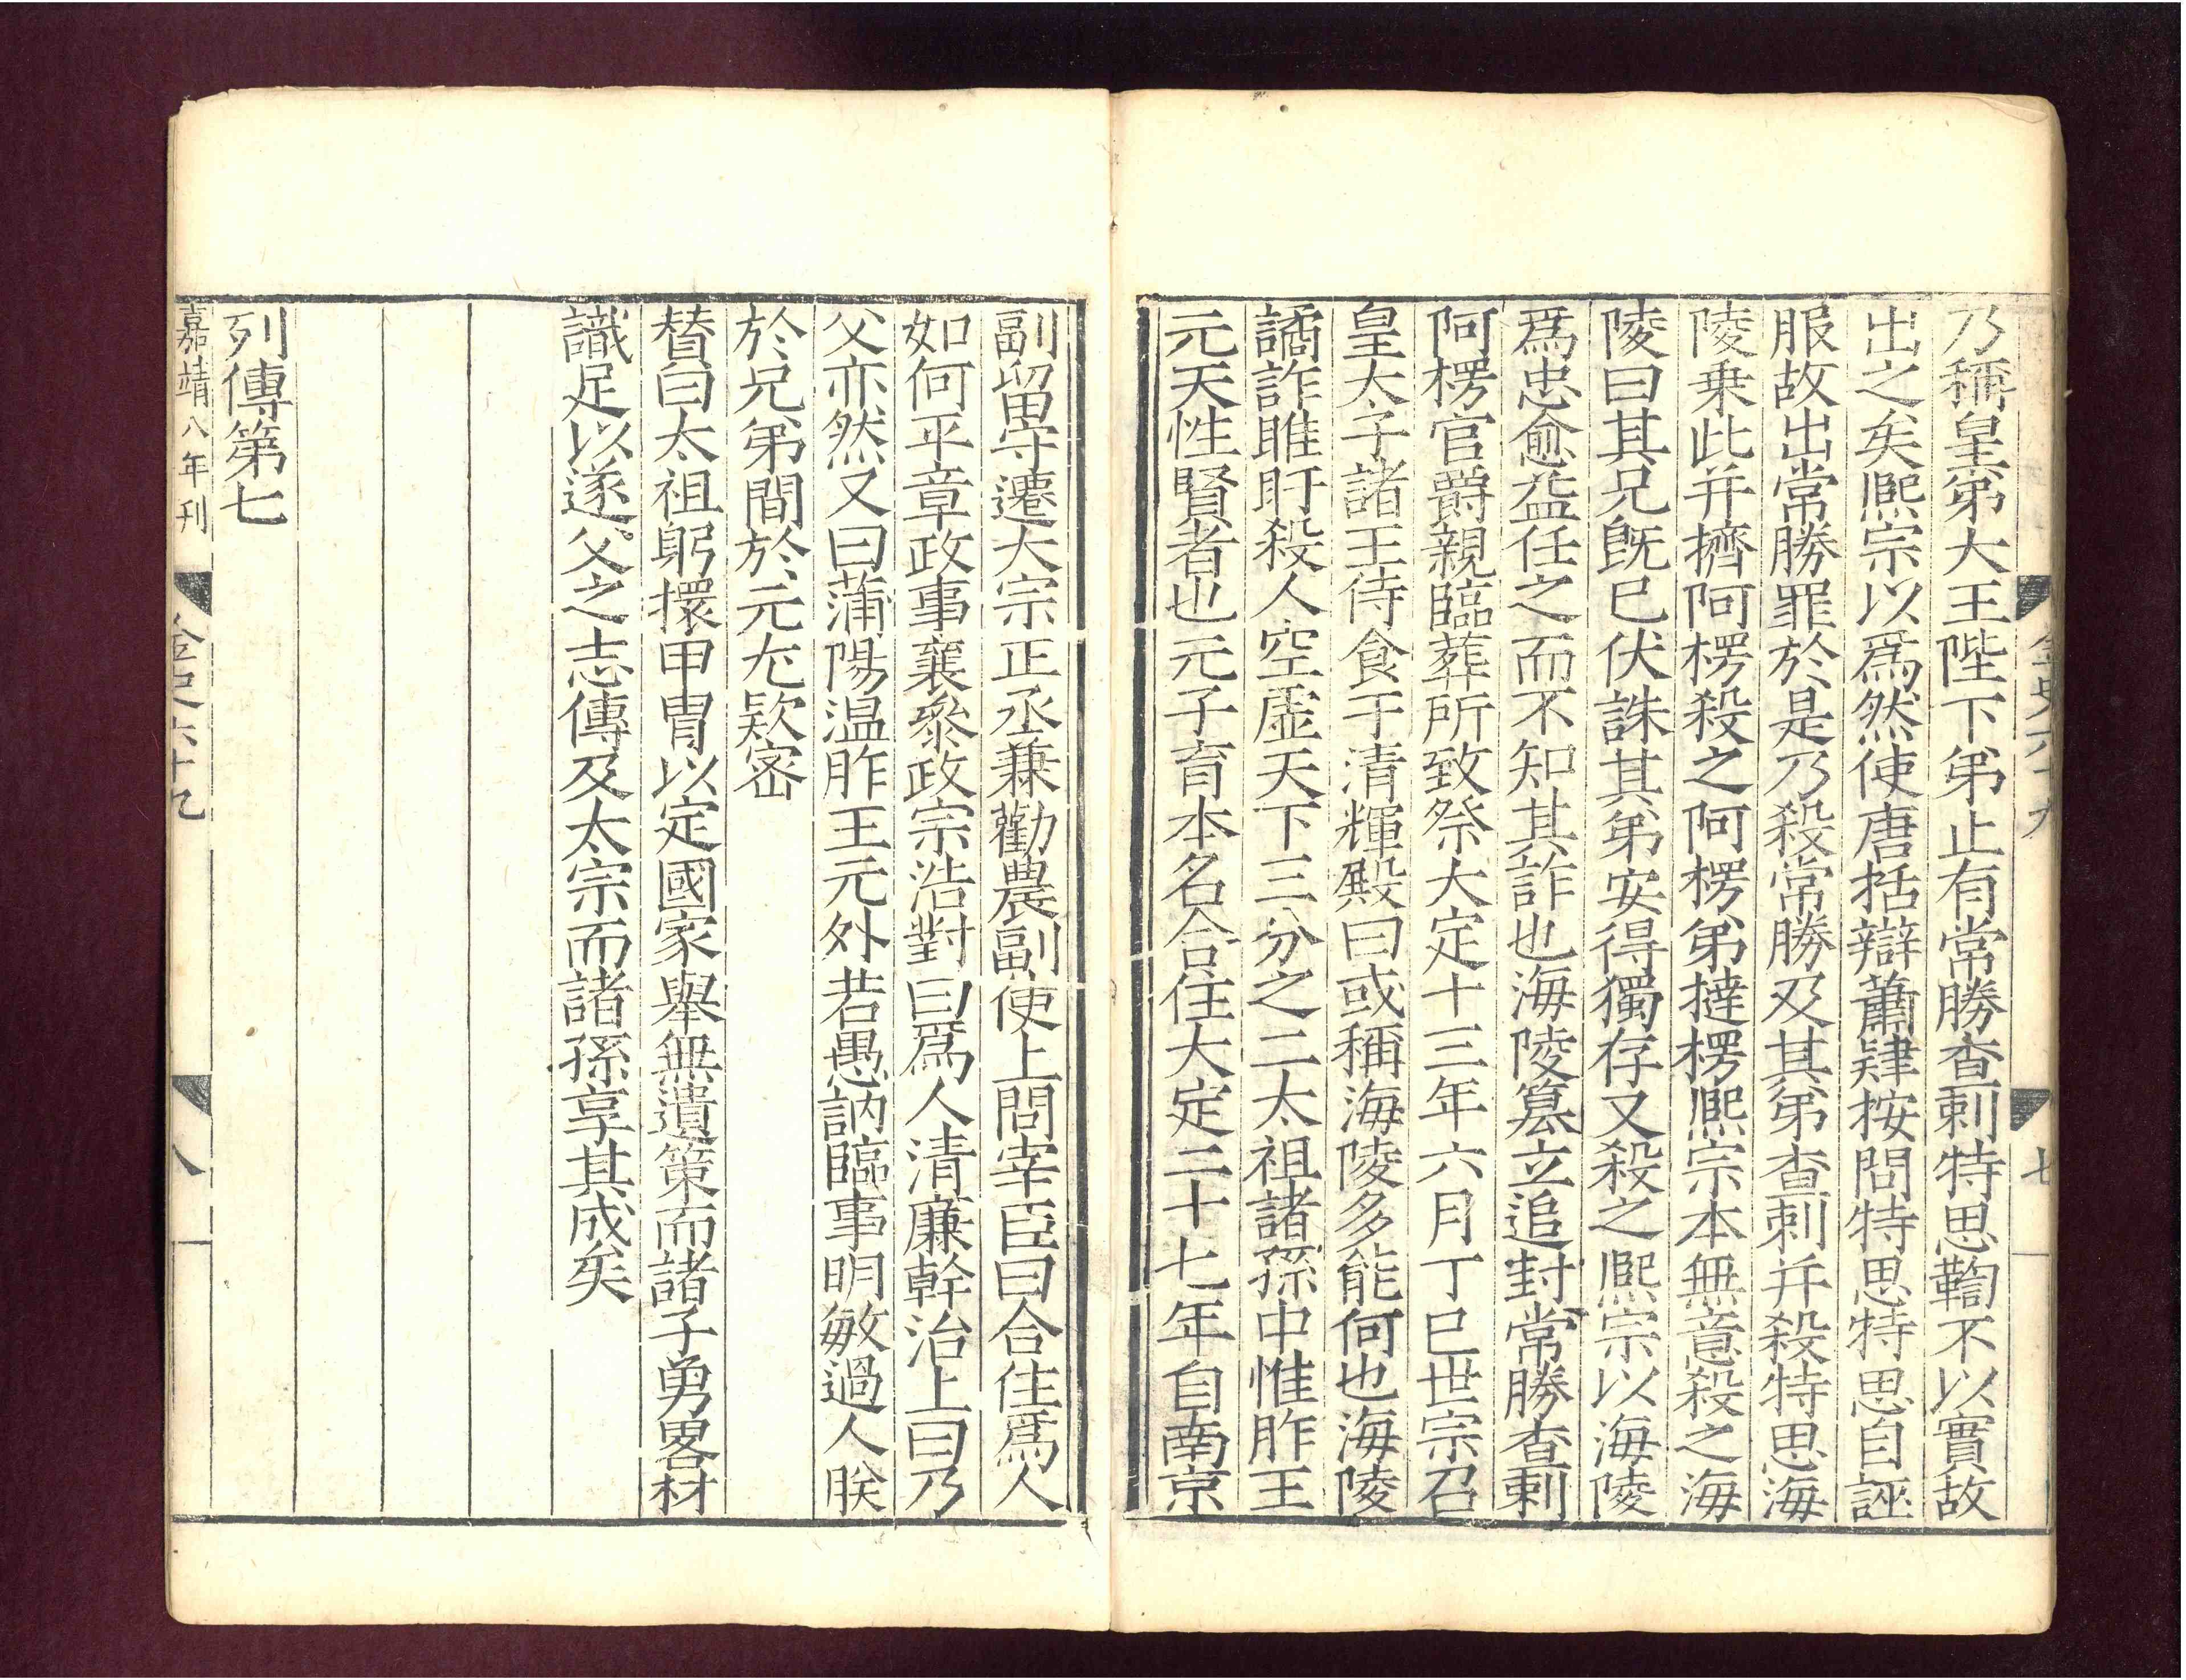 金史六十九 七
乃稱皇弟大王陛下弟止有常勝查剌特思鞫不以實故
出之矣熙宗以爲然使唐括辯蕭肄按問特思特思自誣
服故出常勝罪於是乃殺常勝及其弟查剌并殺特思海
陵乗此并擠阿楞殺之阿楞弟撻楞熙宗本無意殺之海
陵曰其兄既巳伏誅其弟安得獨存又殺之熙宗以海陵
爲忠愈益任之而不知其詐也海陵簒立追封常勝查剌
阿楞官爵親臨葬所致祭大定十三年六月丁巳世宗召
皇太子諸王侍食于清輝殿曰或稱海陵多能何也海陵
譎詐睢盱殺人空虚天下三分之二太祖諸孫中惟胙王
元天性賢者也元子育本名合住大定二十七年自南京
副留守遷大宗正丞兼勸農副使上問宰臣曰合住爲人
如何平章政事襄參政宗浩對曰爲人清廉幹治上曰乃
父亦然又曰蒲陽温胙王元外若愚訥臨事明敏過人朕
於兄弟間於元尤欵密
賛曰太祖躬擐甲冑以定國家舉無遺策而諸子勇畧材
識足以遂父之志傳及太宗而諸孫享其成矣
列傳第七
嘉靖八年刊 金史六十九 八